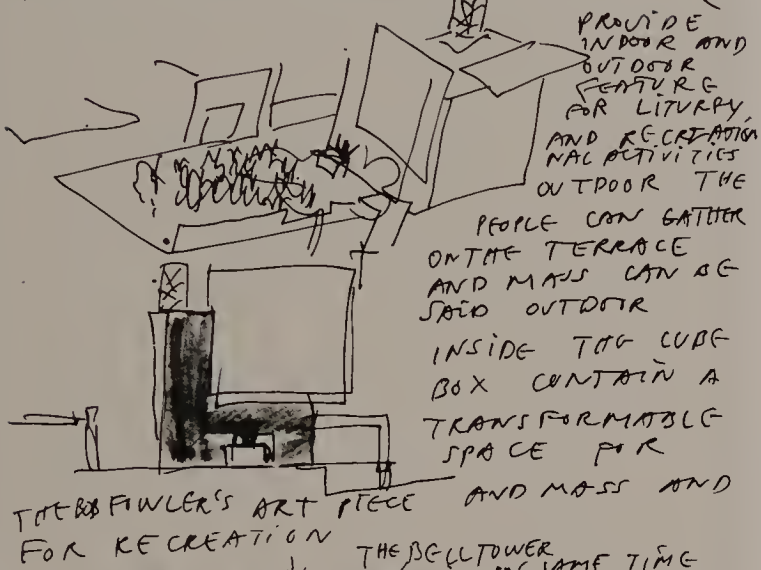 PROVIDE
INDOOR AND
OUTDOOR
FEATURE
FOR LITURPY,
AND RECREATIO
NAL ACTIVITIES
OUTDOOR THE
PEOPLE CAN GATHER
ON THE TERRACE
AND MASS CAN BE
SAID OUTDOOR
INSIDE THE CUBE
BOX CONTAIN A
TRANSFORMABLE
SPACE FOR
AND MASS AND
THE BOB FOWLER'S ART PIECE
FOR RECREATION
THE BELLTOWER
SAME TIME